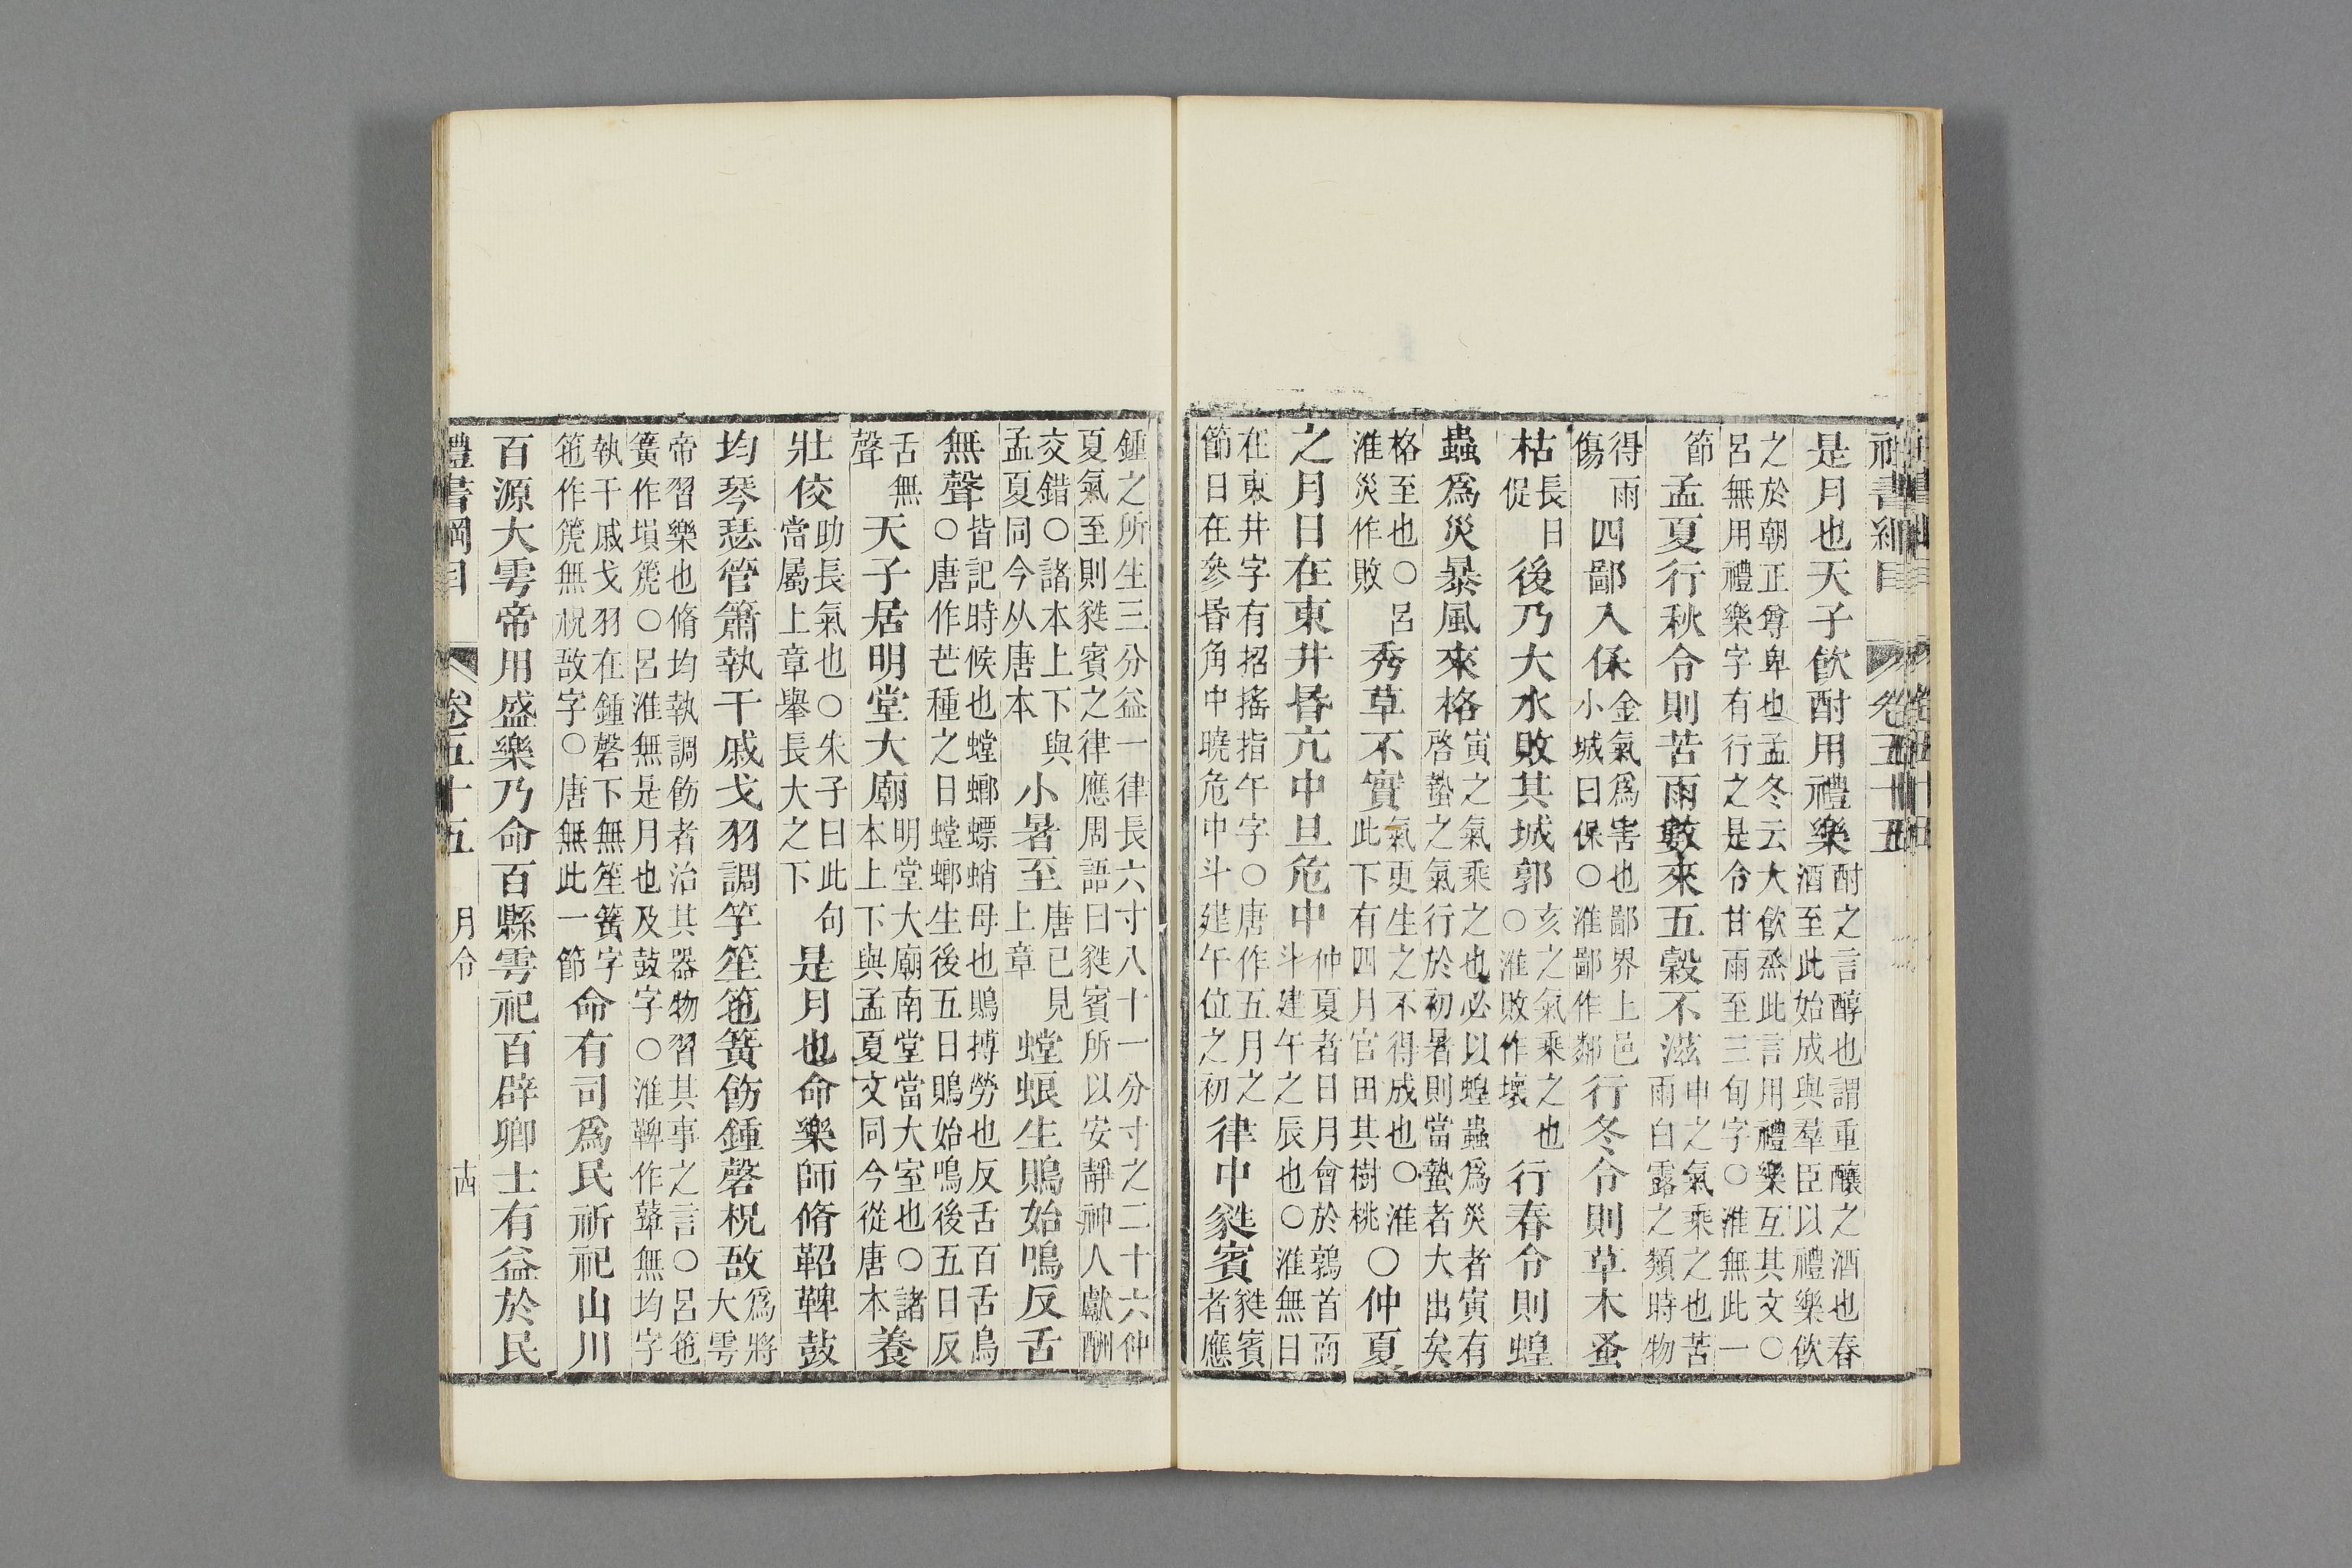 禮書綱目 卷五十五
是月也天子飲酎用禮樂酎之言醇也謂重釀之酒也春酒至此始成與羣臣以禮樂飲
之於朝正尊卑也孟冬云大飲烝此言用禮樂互其文○
呂無用禮樂字有行之是令甘雨至三旬字○淮無此一
節孟夏行秋令則苦雨數來五穀不滋申之氣乘之也苦雨白露之類時物
得雨傷四鄙入保金氣爲害也鄙界上邑小城曰保○淮鄙作鄰行冬令則草木蚤
枯長日促後乃大水敗其城郭亥之氣乘之也○淮敗作壞行春令則蝗
蟲爲災暴風來格寅之氣乘之也必以蝗蟲爲災者寅有啓蟄之氣行於初暑則當蟄者大出矣
格至也○呂淮災作敗秀草不實氣更生之不得成也○淮此下有四月官田其樹桃○仲夏
之月日在東井昬亢中旦危中仲夏者日月會於鶉首而斗建午之辰也○淮無日
在東井字有招搖指午字○唐作五月之節日在參昬角中曉危中斗建午位之初律中蕤賓蕤賓者應
鍾之所生三分益一律長六寸八十一分寸之二十六仲
夏氣至則蕤賓之律應周語曰蕤賓所以安靜神人獻酬
交錯○諸本上下與孟夏同今从唐本小暑至唐已見上章螳蜋生鵙始鳴反舌
無聲皆記時候也螳螂螵蛸母也鵙搏勞也反舌百舌鳥○唐作芒種之日螳螂生後五日鵙始鳴後五日反
舌無聲天子居明堂大廟明堂大廟南堂當大室也○諸本上下與孟夏文同今從唐本養
壯佼助長氣也○朱子曰此句當屬上章舉長大之下是月也命樂師脩鞀鞞鼓
均琴瑟管簫執干戚戈羽調竽笙竾簧飭鍾磬柷敔爲將大雩
帝習樂也脩均執調飭者治其器物習其事之言○呂竾
簧作塤箎○呂淮無是月也及鼓字○淮鞞作鼙無均字
執干戚戈羽在鍾磬下無笙簧字竾作箎無柷敔字○唐無此一節命有司爲民祈祀山川
百源大雩帝用盛樂乃命百縣雩祀百辟卿士有益於民
禮書綱目 卷五十五 月令 十四